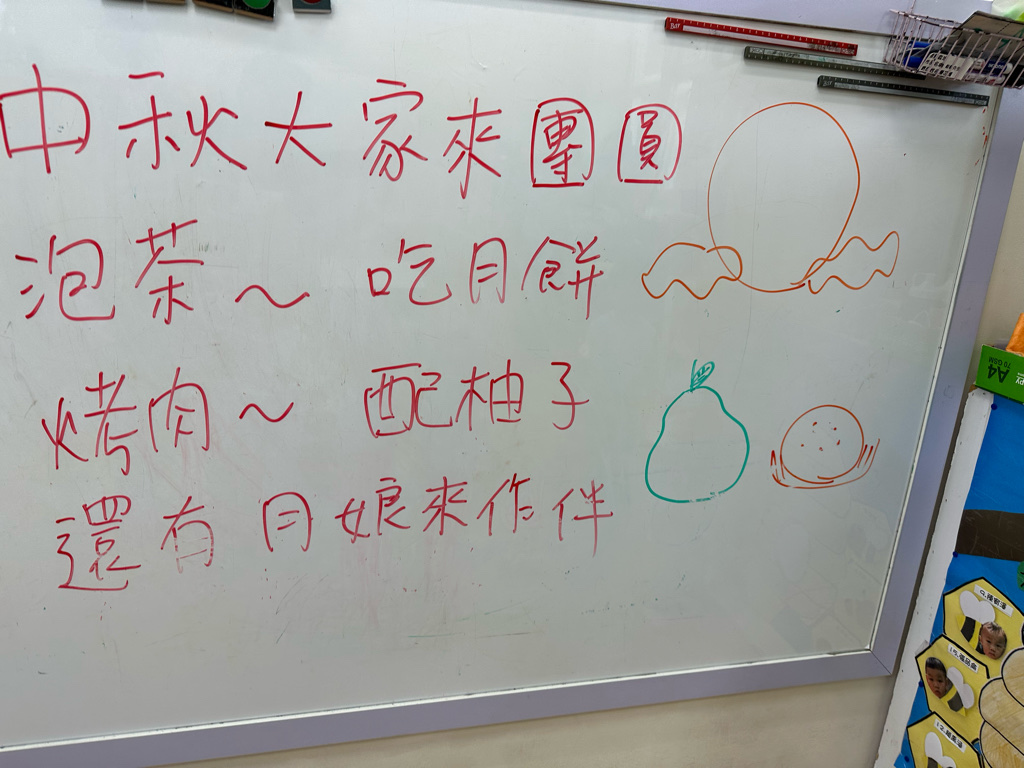 中秋大家來團圓
泡茶～ 吃月餅
烤肉～ 配柚子
還有月娘來作伴
A4